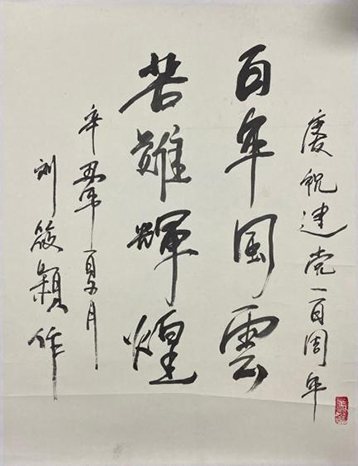 慶祝建党一百周年
百年風雲
苦難輝煌
辛丑年夏月
刘筱颖作